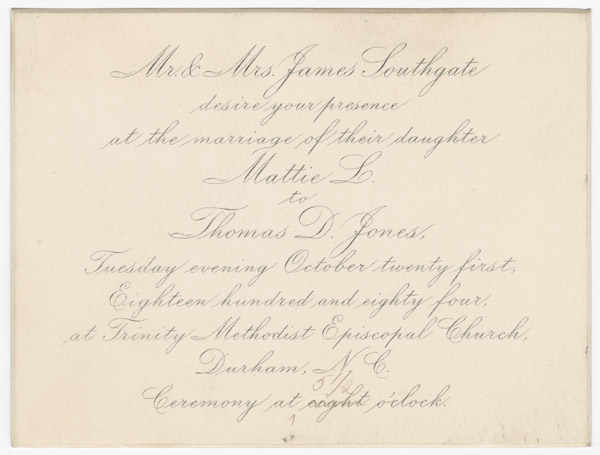 Mr. & Mrs. James Southgate
desire your presence
at the marriage of their daughter
Mattie L.
to
Thomas D. Jones,
Tuesday evening October twenty first,
Eighteen hundred and eighty four,
at Trinity Methodist Episcopal Church,
Durham, N. C.
5 1/2
Ceremony at eight o'clock.